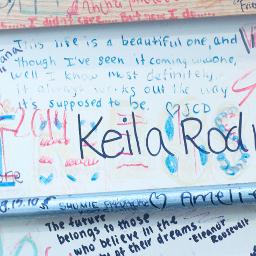 I didn't care.... But now I do...
This life is a beautiful one, and
though I've seen it coming undone,
well I know most definitely,
it always works out the way
it's supposed to be. ♡JCD
2011
Keila Rod
SHUMIE ♡ Ameli
The future
belongs to those
who believe in the
of their dreams. -Eleanor
Roosevelt